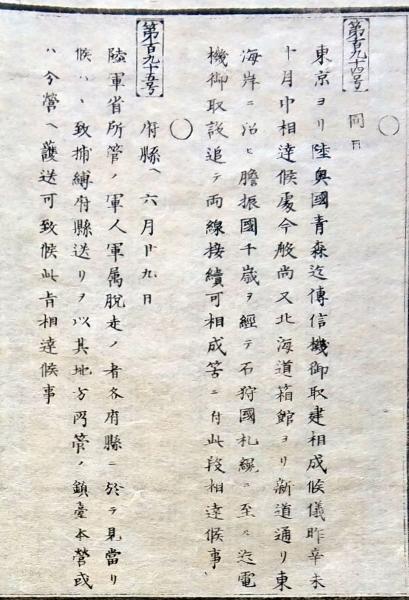 ○
第百九十四号
同日
東京ヨリ陸奥國青森迄傳信機御取建相成候儀昨辛未
十月中相達候處今般尚又北海道箱館ヨリ新道通リ東
海岸ニ沿ヒ膽振國千歳ヲ經テ石狩國札縨ニ至ル迄電
機御取設追テ両線接續可相成筈ニ付此段相達候事
第百九十五号
○
府縣ヘ六月廿九日
陸軍省所管ノ軍人軍属脱走ノ者各府縣ニ於テ見當リ
候ハヽ致捕縛府縣送リヲ以其地方所管ノ鎮臺本營或
ハ分營ヘ護送可致候此旨相達候事